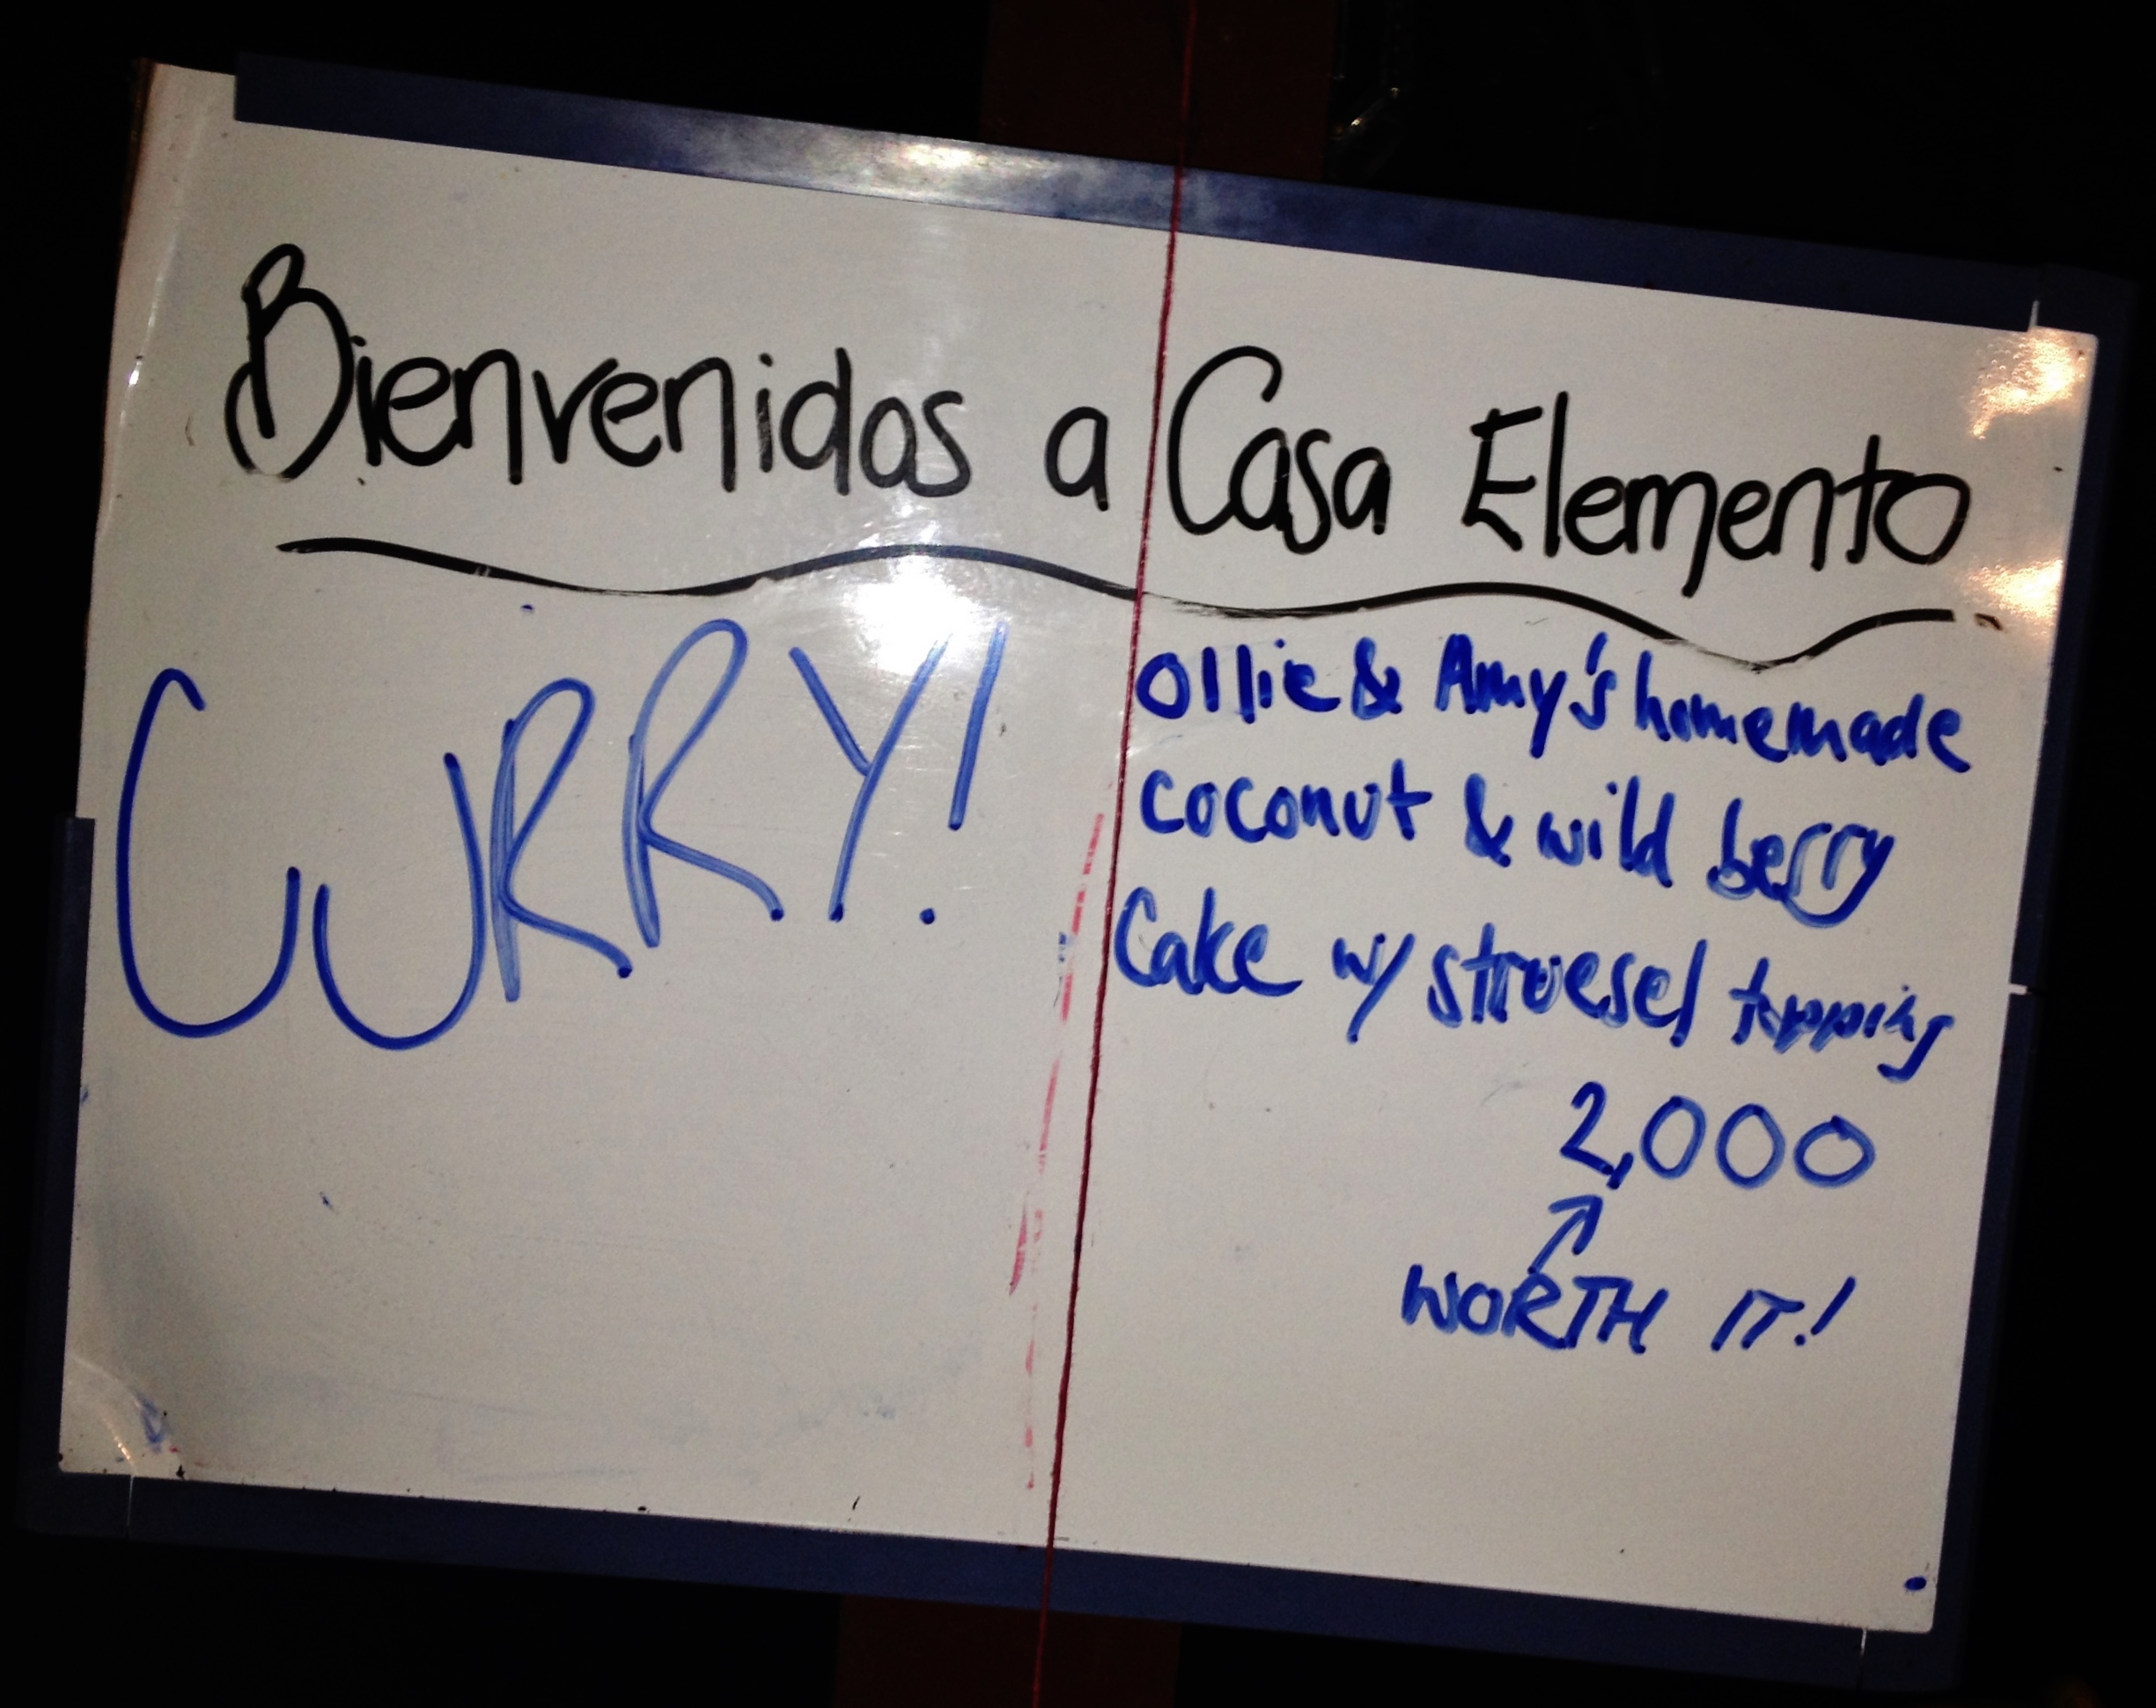 Bienvenidos a Casa Elemento
CURRY!
Ollie & Amy's homemade
coconut & wild berry
Cake w/ struesel topping
2,000
WORTH IT!